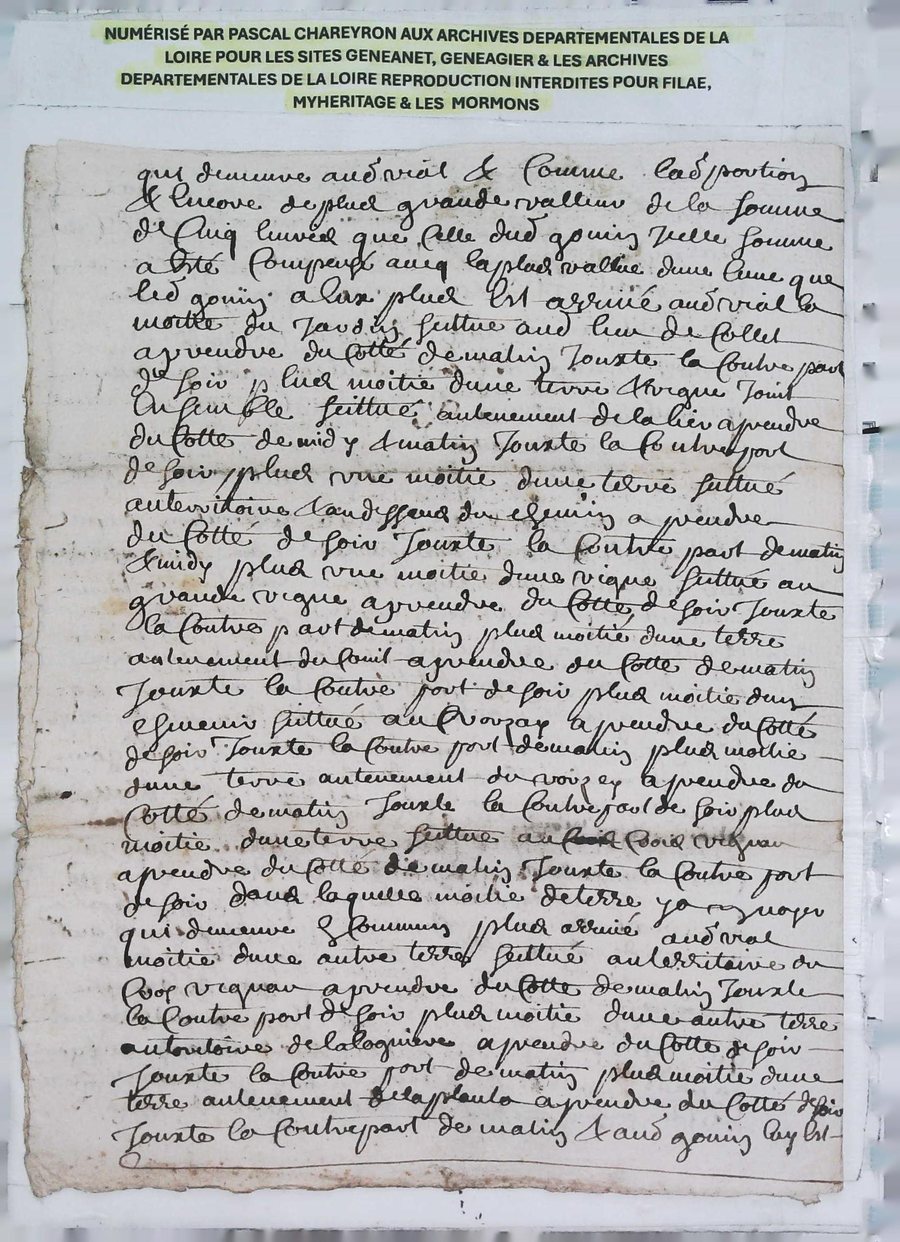 NUMÉRISÉ PAR PASCAL CHAREYRON AUX ARCHIVES DEPARTEMENTALES DE LA
LOIRE POUR LES SITES GENEANET, GENEAGIER & LES ARCHIVES
DEPARTEMENTALES DE LA LOIRE REPRODUCTION INTERDITES POUR FILAE,
MYHERITAGE & LES MORMONS
qui demeure aud vial & Comme lad portion
& Encore de plus grande valleur de la somme
de Cinq livres que Celle dud gouin Icelle somme
a Esté Compensé aveq la plus vallue dune que
led gouin a plus Est arrivé aud vial la
moitié du Jardin scittué aud lieu de Collet
a prendre du Cotté de matin Jouxte la Contre part
de soir plus moitié dune terre & vigne Joint
Ensemble scittué autenement de a prendre
du Cotté de midy & matin Jouxte la Contre part
de soir plus une moitié dune terre scittué
auterritoire & audessous du chemin a prendre
du Cotté de soir Jouxte la Contre part de matin
& midy plus une moitié dune vigne scittué au
grande vigne a prendre du Cotté de soir Jouxte
la Contre part de matin plus moitié dune terre
autenement du a prendre du Cotté de matin
Jouxte la Contre part de soir plus moitié dun
scittué au a prendre du Cotté
de soir Jouxte la Contre part de matin plus moitié
dune terre autenement du a prendre du
Cotté de matin Jouxte la Contre part de soir plus
moitié dune terre scittué au vignau
a prendre du Cotté de matin Jouxte la Contre part
de soir dans laquelle moitié de terre y a un noyer
qui demeure Commun plus arrivé aud vial
moitié dune autre terre scittué au territoire du
vignau a prendre du Cotté de matin Jouxte
la Contre part de soir plus moitié dune autre terre
de a prendre du Cotté de soir
Jouxte la Contre part de matin plus moitié dune
terre autenement de la a prendre du Cotté de soir
Jouxte la Contre part de matin & aud gouin luy Est